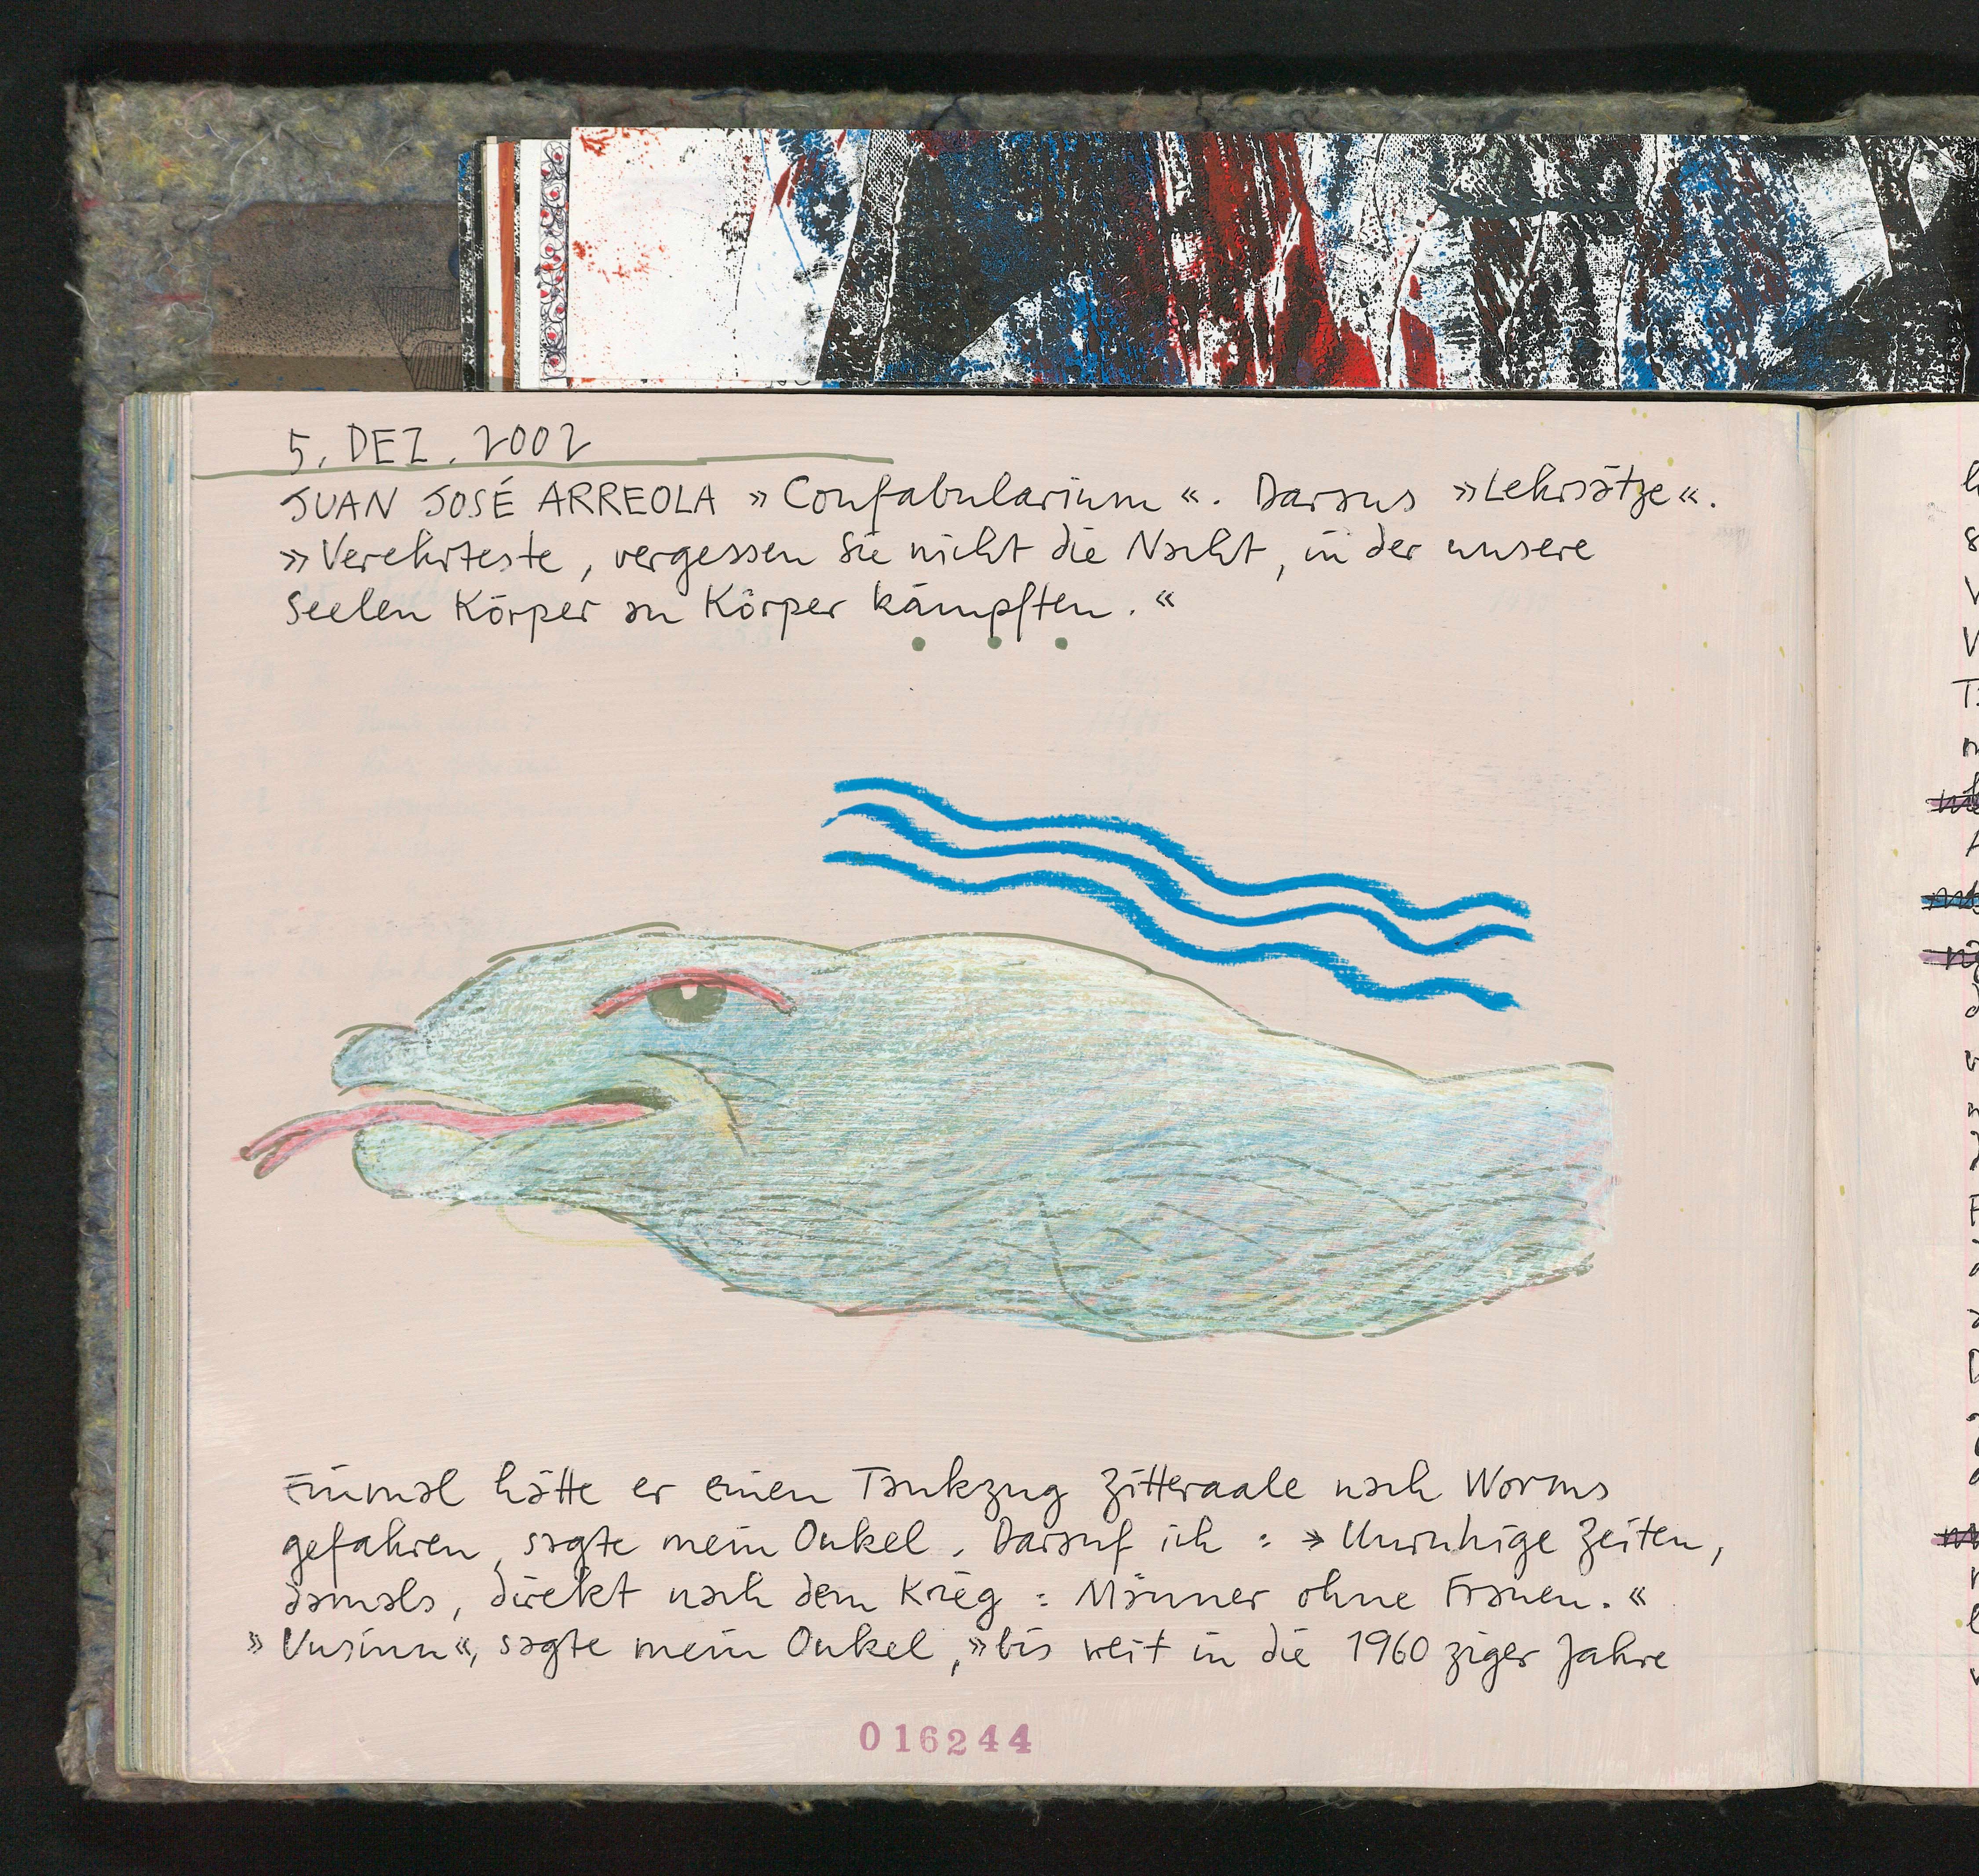 5. DEZ. 2002
JUAN JOSÉ ARREOLA »Confabularium«. Daraus »Lehrsätze«.
»Verehrteste, vergessen Sie nicht die Nacht, in der unsere
Seelen Körper an Körper kämpften.«
Einmal hätte er einen Tankzug Zitteraale nach Worms
gefahren, sagte mein Onkel. Darauf ich: »Unruhige Zeiten,
damals, direkt nach dem Krieg: Männer ohne Frauen.«
»Unsinn«, sagte mein Onkel, »bis weit in die 1960ziger Jahre
016244